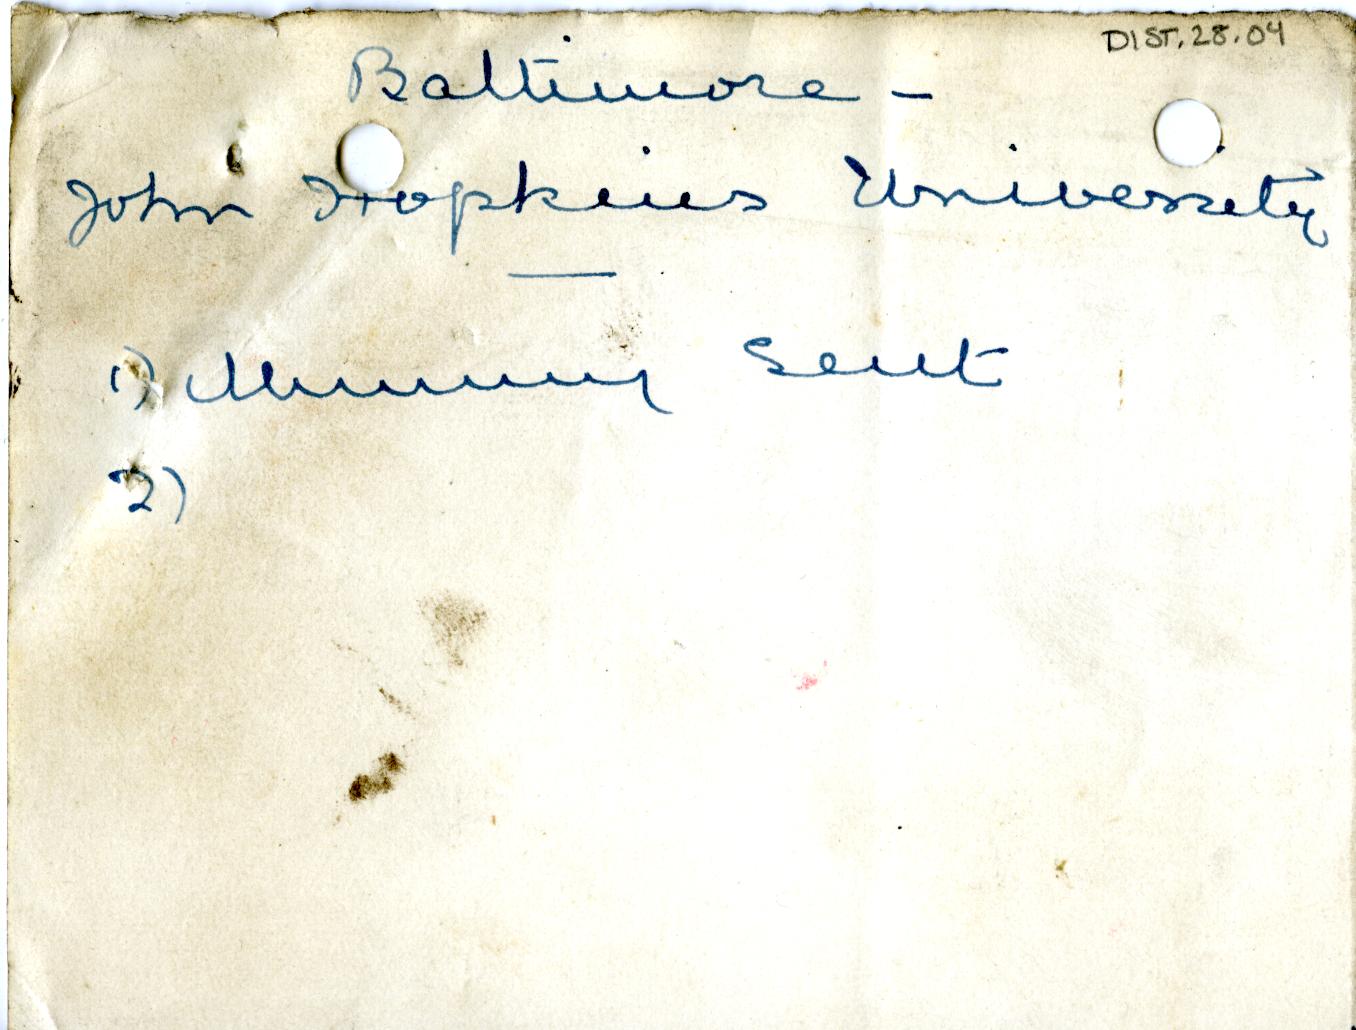 DIST.28.04
Baltimore -
John Hopkins University
1) Mummy Sent
2)